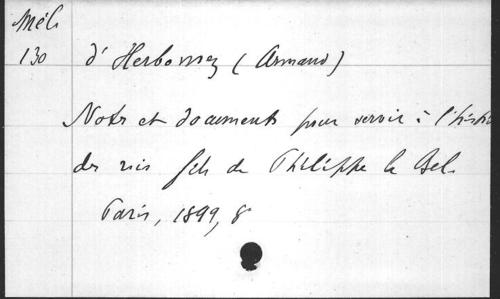 Mél.
130
d'Herbomez (Armand)
Notes et documents pour servir à l'histoire
des rois fils de Philippe le Bel.
Paris, 1899, 8°